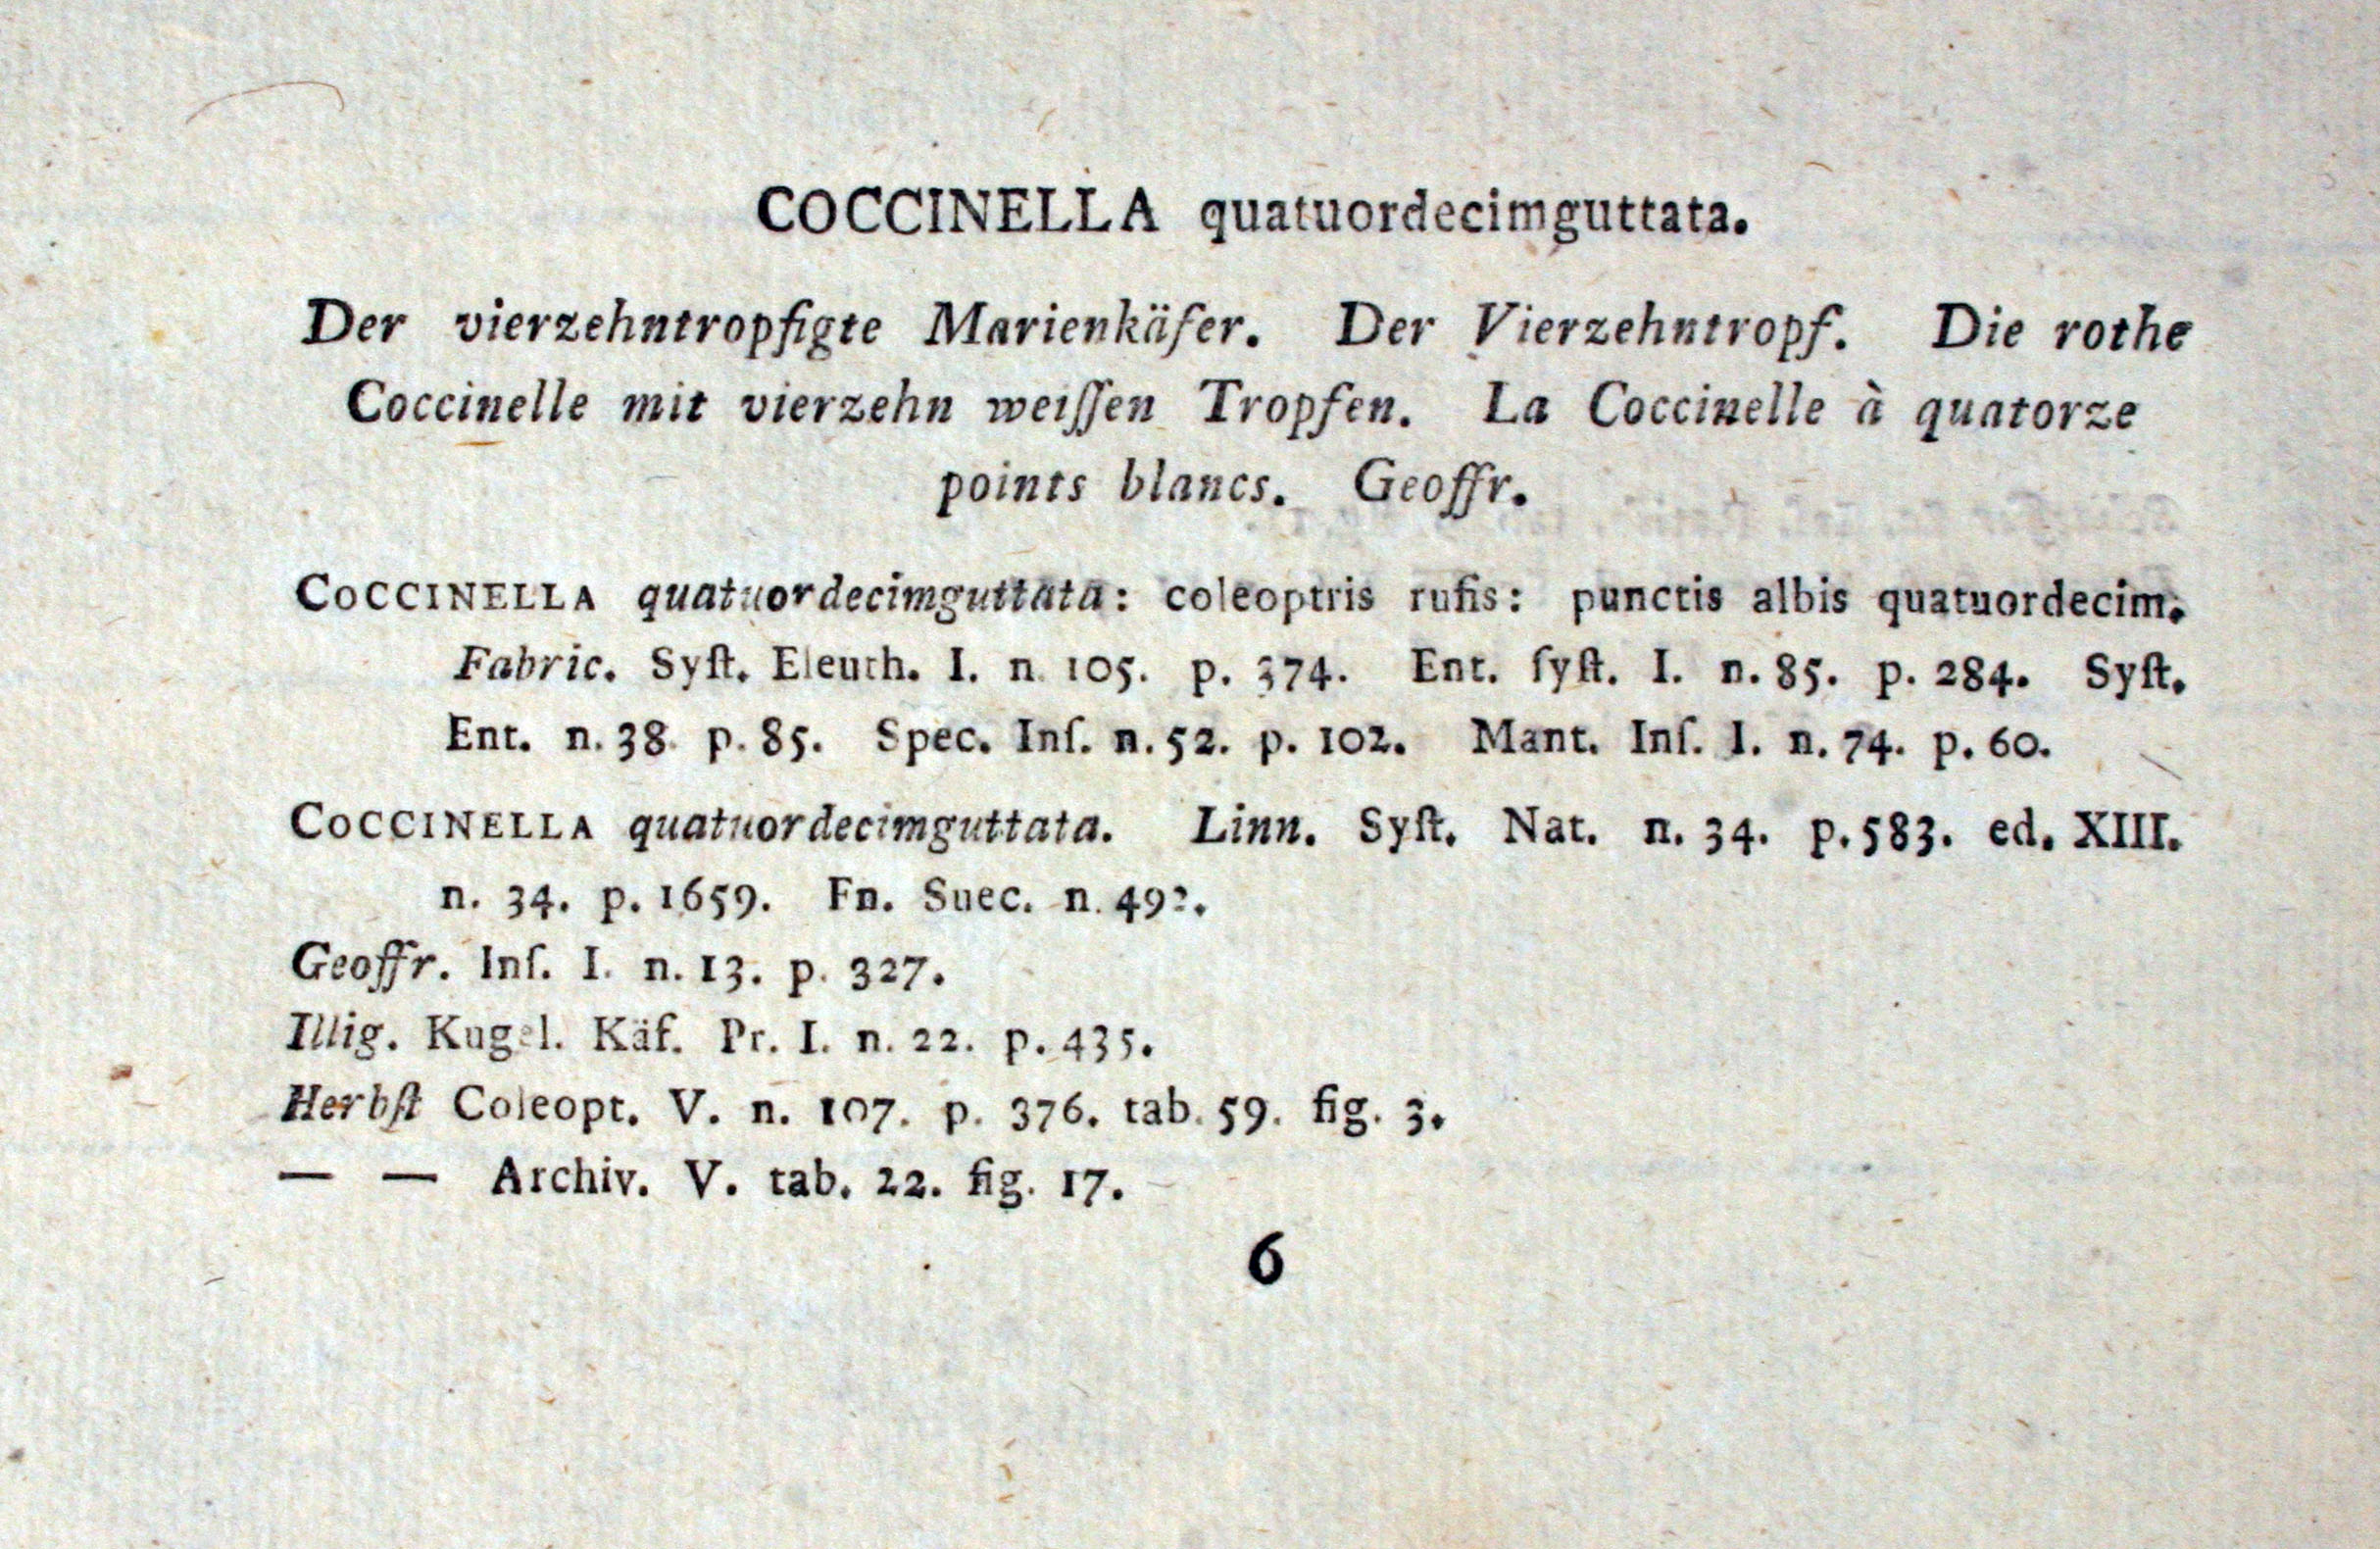 COCCINELLA quatuordecimguttata.
Der vierzehntropfigte Marienkäfer. Der Vierzehntropf. Die rothe
Coccinelle mit vierzehn weiſſen Tropfen. La Coccinelle à quatorze
points blancs. Geoffr.
COCCINELLA quatuordecimguttata: coleoptris rufis: punctis albis quatuordecim.
Fabric. Syſt. Eleuth. I. n. 105. p. 374. Ent. ſyſt. I. n. 85. p. 284. Syſt.
Ent. n. 38. p. 85. Spec. Inſ. n. 52. p. 102. Mant. Inſ. I. n. 74. p. 60.
COCCINELLA quatuordecimguttata. Linn. Syſt. Nat. n. 34. p. 583. ed. XIII.
n. 34. p. 1659. Fn. Suec. n. 492.
Geoffr. Inſ. I. n. 13. p. 327.
Illig. Kugel. Käf. Pr. I. n. 22. p. 435.
Herbſt Coleopt. V. n. 107. p. 376. tab. 59. fig. 3.
— — Archiv. V. tab. 22. fig. 17.
6